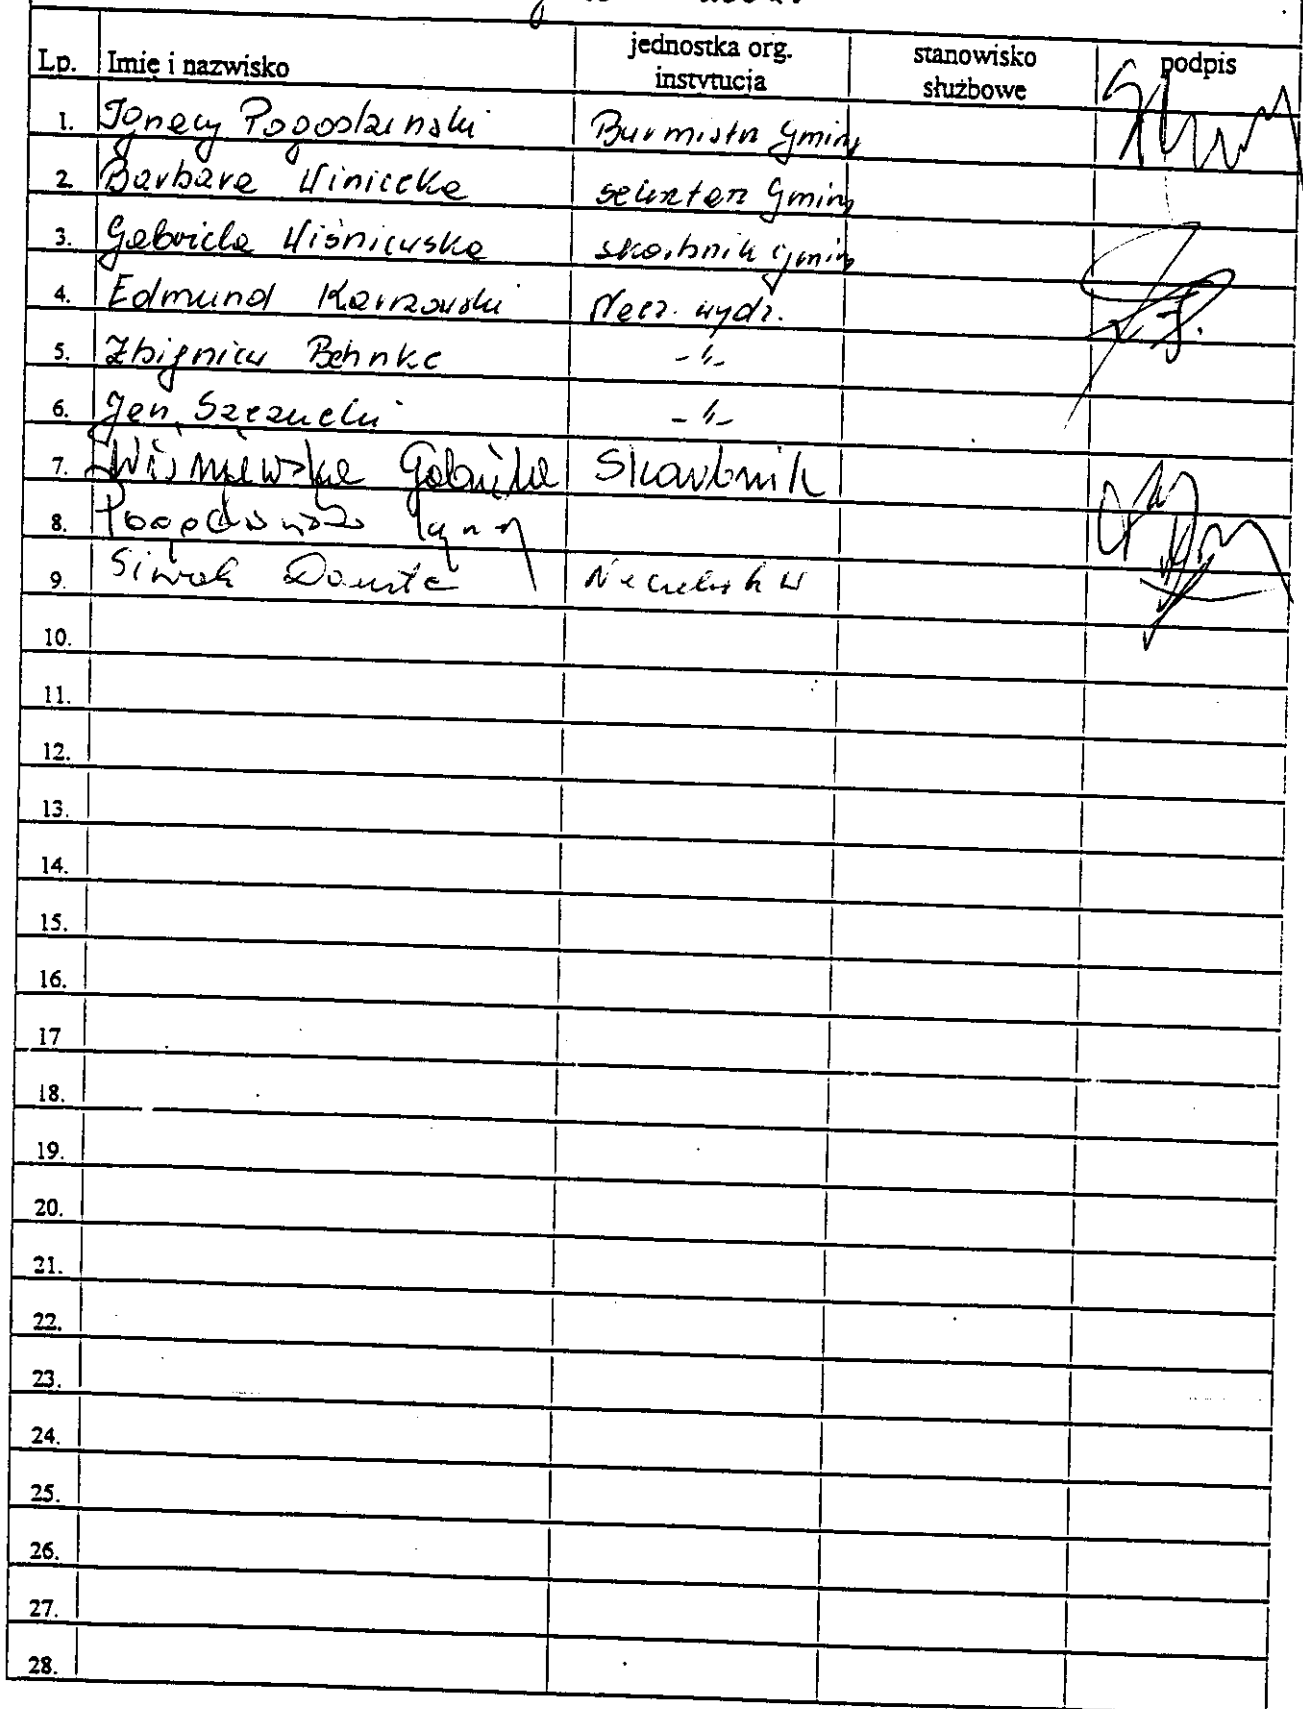 Lp. Imię i nazwisko jednostka org. instytucja stanowisko służbowe podpis
1. Ignacy Pogodziński Burmistrz Gminy
2 Barbara Winiecka sekretarz Gminy
3. Gabriela Wiśniewska skarbnik gminy
4. Edmund Karzowski Nacz. wydz.
5. Zbigniew Behnke -"-
6. Jan Szczucki -"-
7. Wiśniewska Gabriela Skarbnik
8.
9. Siwak Danuta Naczelnik W
10.
11.
12.
13.
14.
15.
16.
17
18.
19.
20.
21.
22.
23.
24.
25.
26.
27.
28.